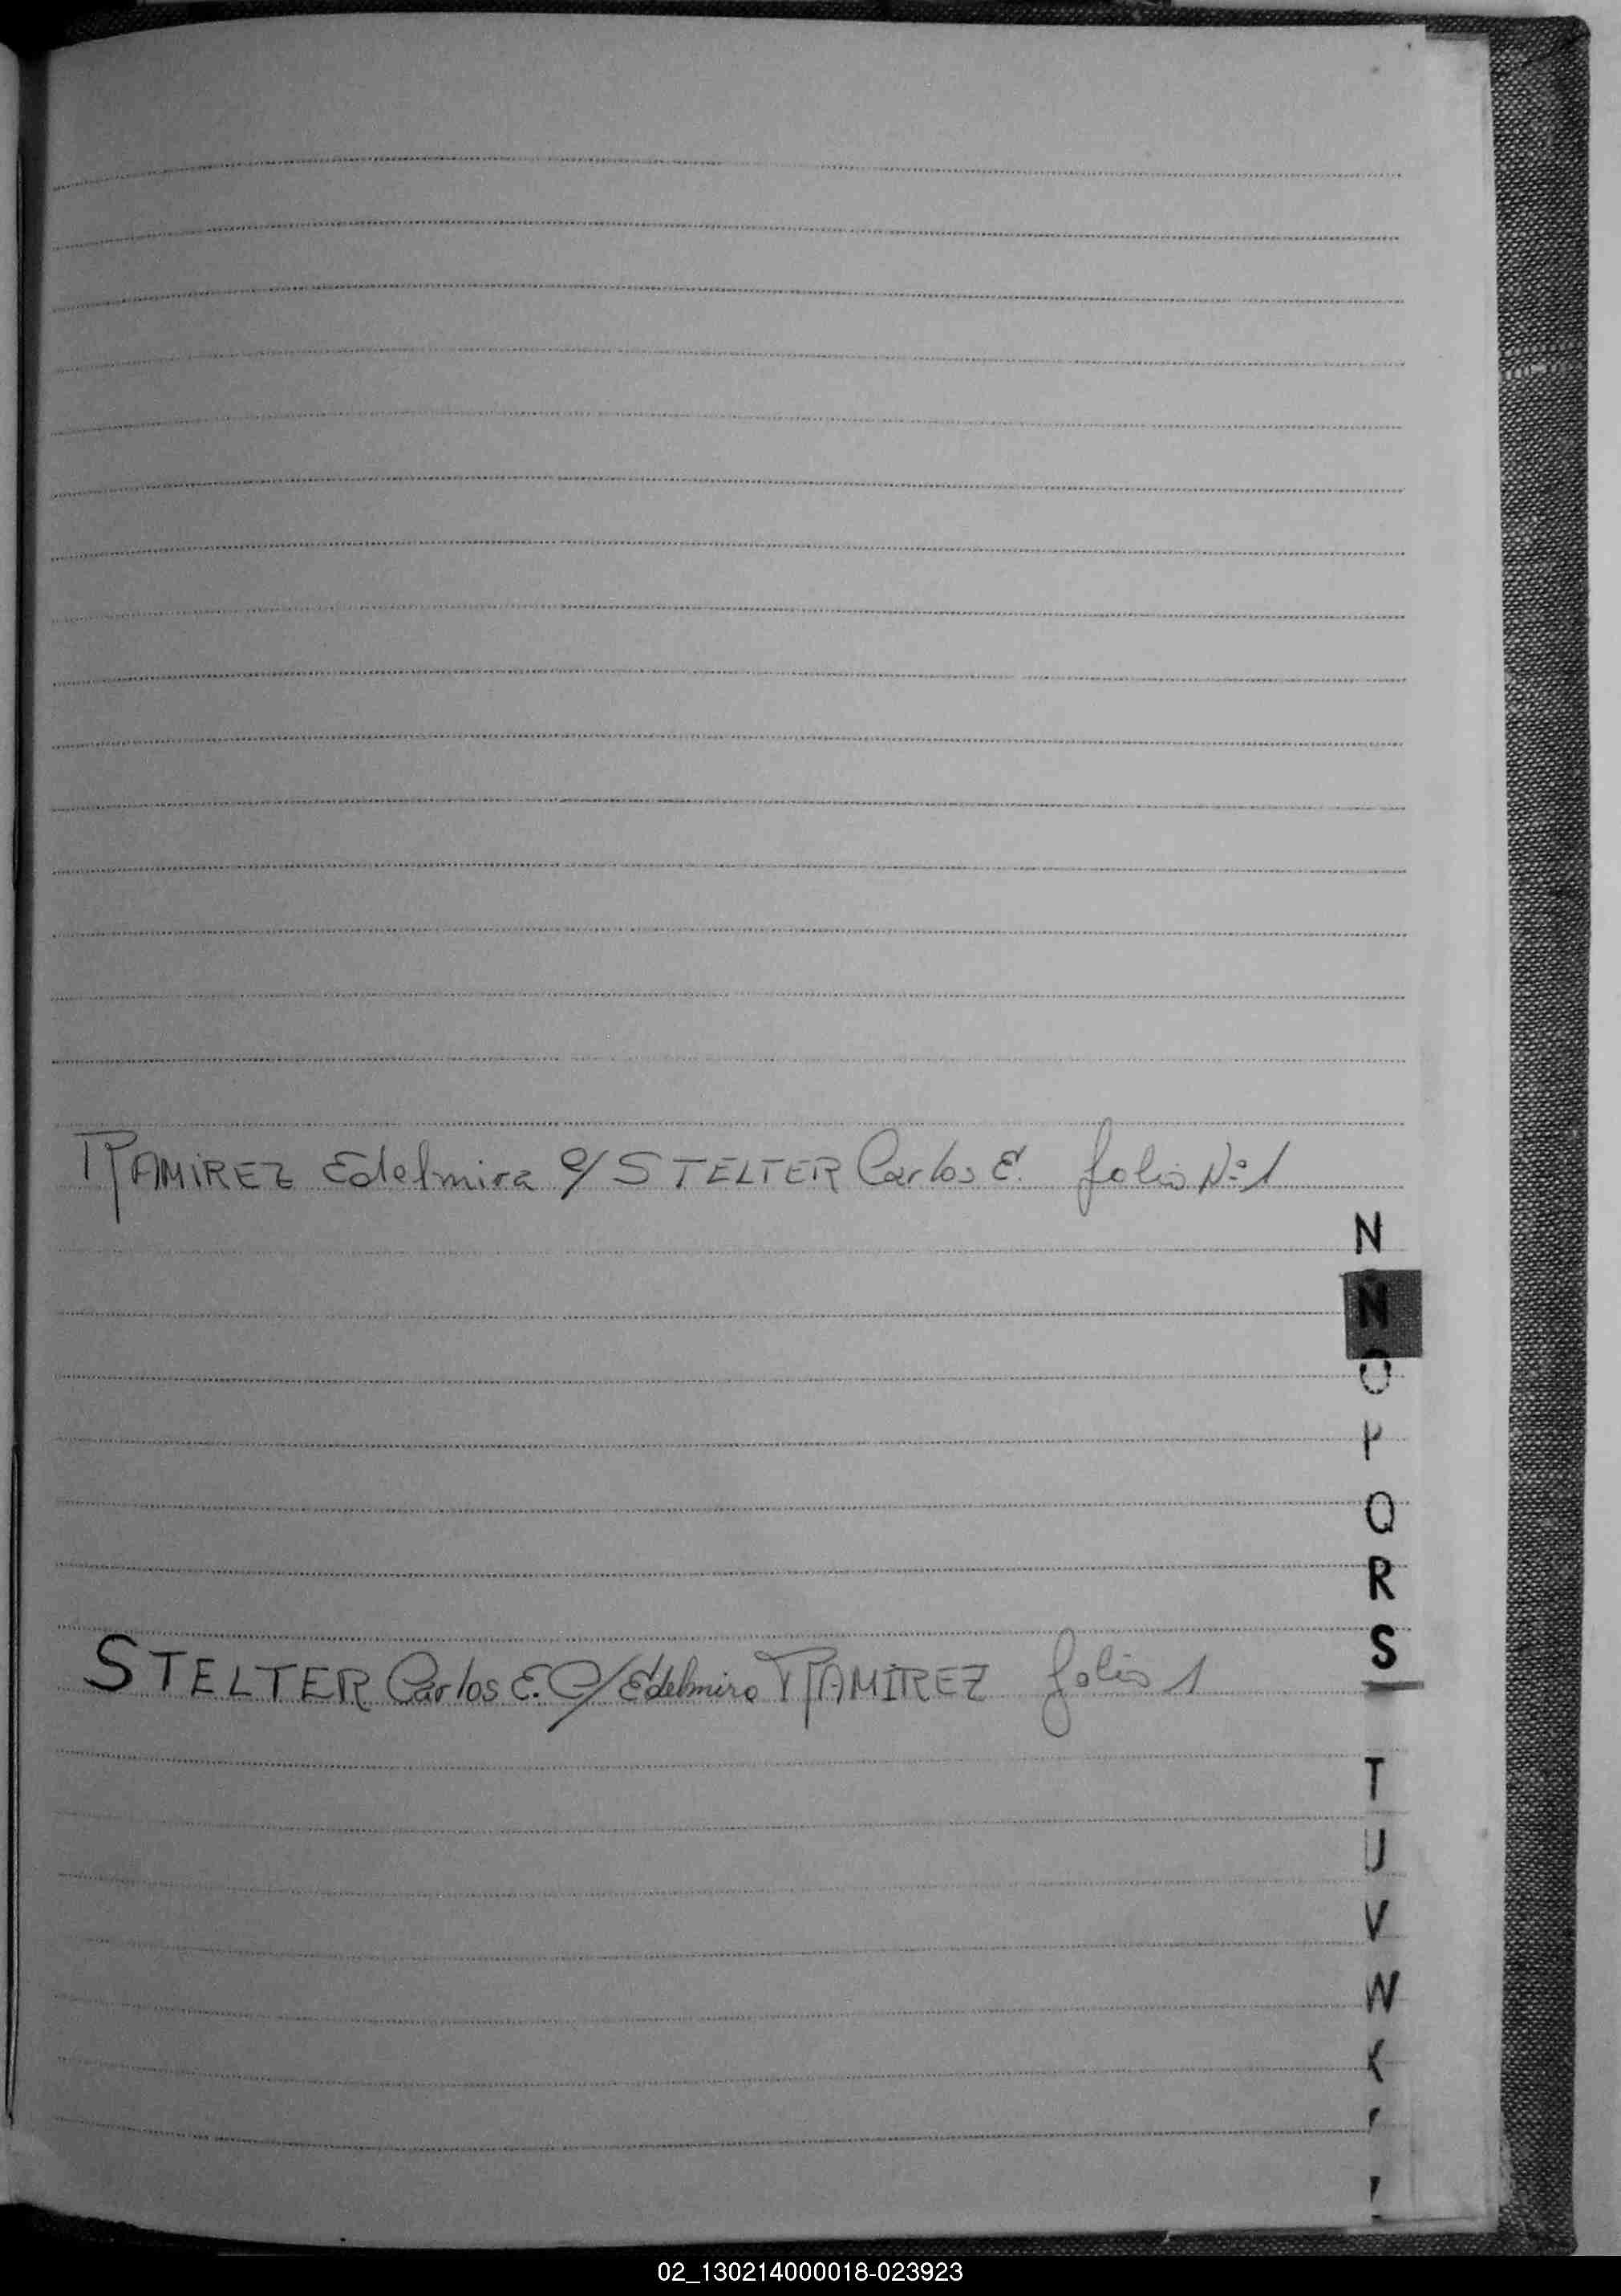 RAMIREZ Edelmira c/ STELTER Carlos E. folio Nº 1
N
N
O
P
Q
R
STELTER Carlos E. C/ Edelmira RAMIREZ folio 1
S
T
U
V
W
02_130214000018-023923